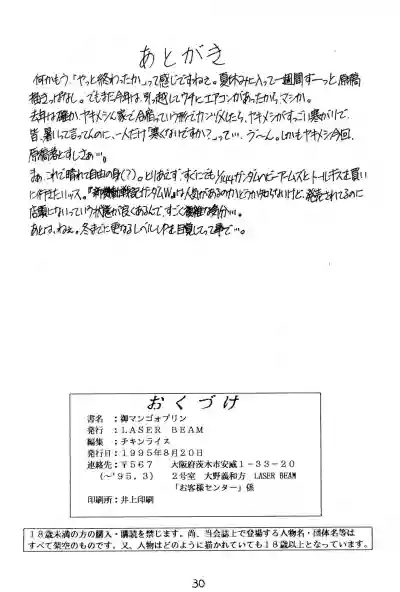 あとがき
何かもう、「やっと終わったか」って感じですねぇ。夏休みに入って一週間ずーっと原稿
描きっぱなし。でもまだ今年は、引っ越してウチにエアコンがあったから、マシか。
去年は確か、ヤキメシん家で合宿っていう形でカンヅメしたら、ヤキメシがすっごい寒がりで、
皆、暑いって言ってんのに、一人だけ「寒くないですか?」って…。う〜ん。しかもヤキメシ今回、
原稿落とすしさぁ…。
さぁ、これで晴れて自由の身(?)。とりあえず、すぐにでも1/144ガンダムヘビーアームズとトールギスを買い
に行きたいッス。『新機動戦記ガンダムW』は人気があるのかどうか知らないけど、発売されてるのに
店頭にないっていう状態が良くあるんで、すごく複雑な気分…。
あとは、ねぇ。冬までに更なるレベルUPを目覚してって事で…。
おくづけ
書名:御マンゴォプリン
発行:LASER BEAM
編集:チキンライス
発行日:1995年8月20日
連絡先:〒567 大阪府茨木市安威1-33-20
(〜'95.3) 2号室 大野義和方 LASER BEAM
「お客様センター」係
印刷所:井上印刷
18歳未満の方の購入・購読を禁じます。尚、当会誌上で登場する人物名・団体名等は
すべて架空のものです。又、人物はどのように描かれていても18歳以上となっています。
30